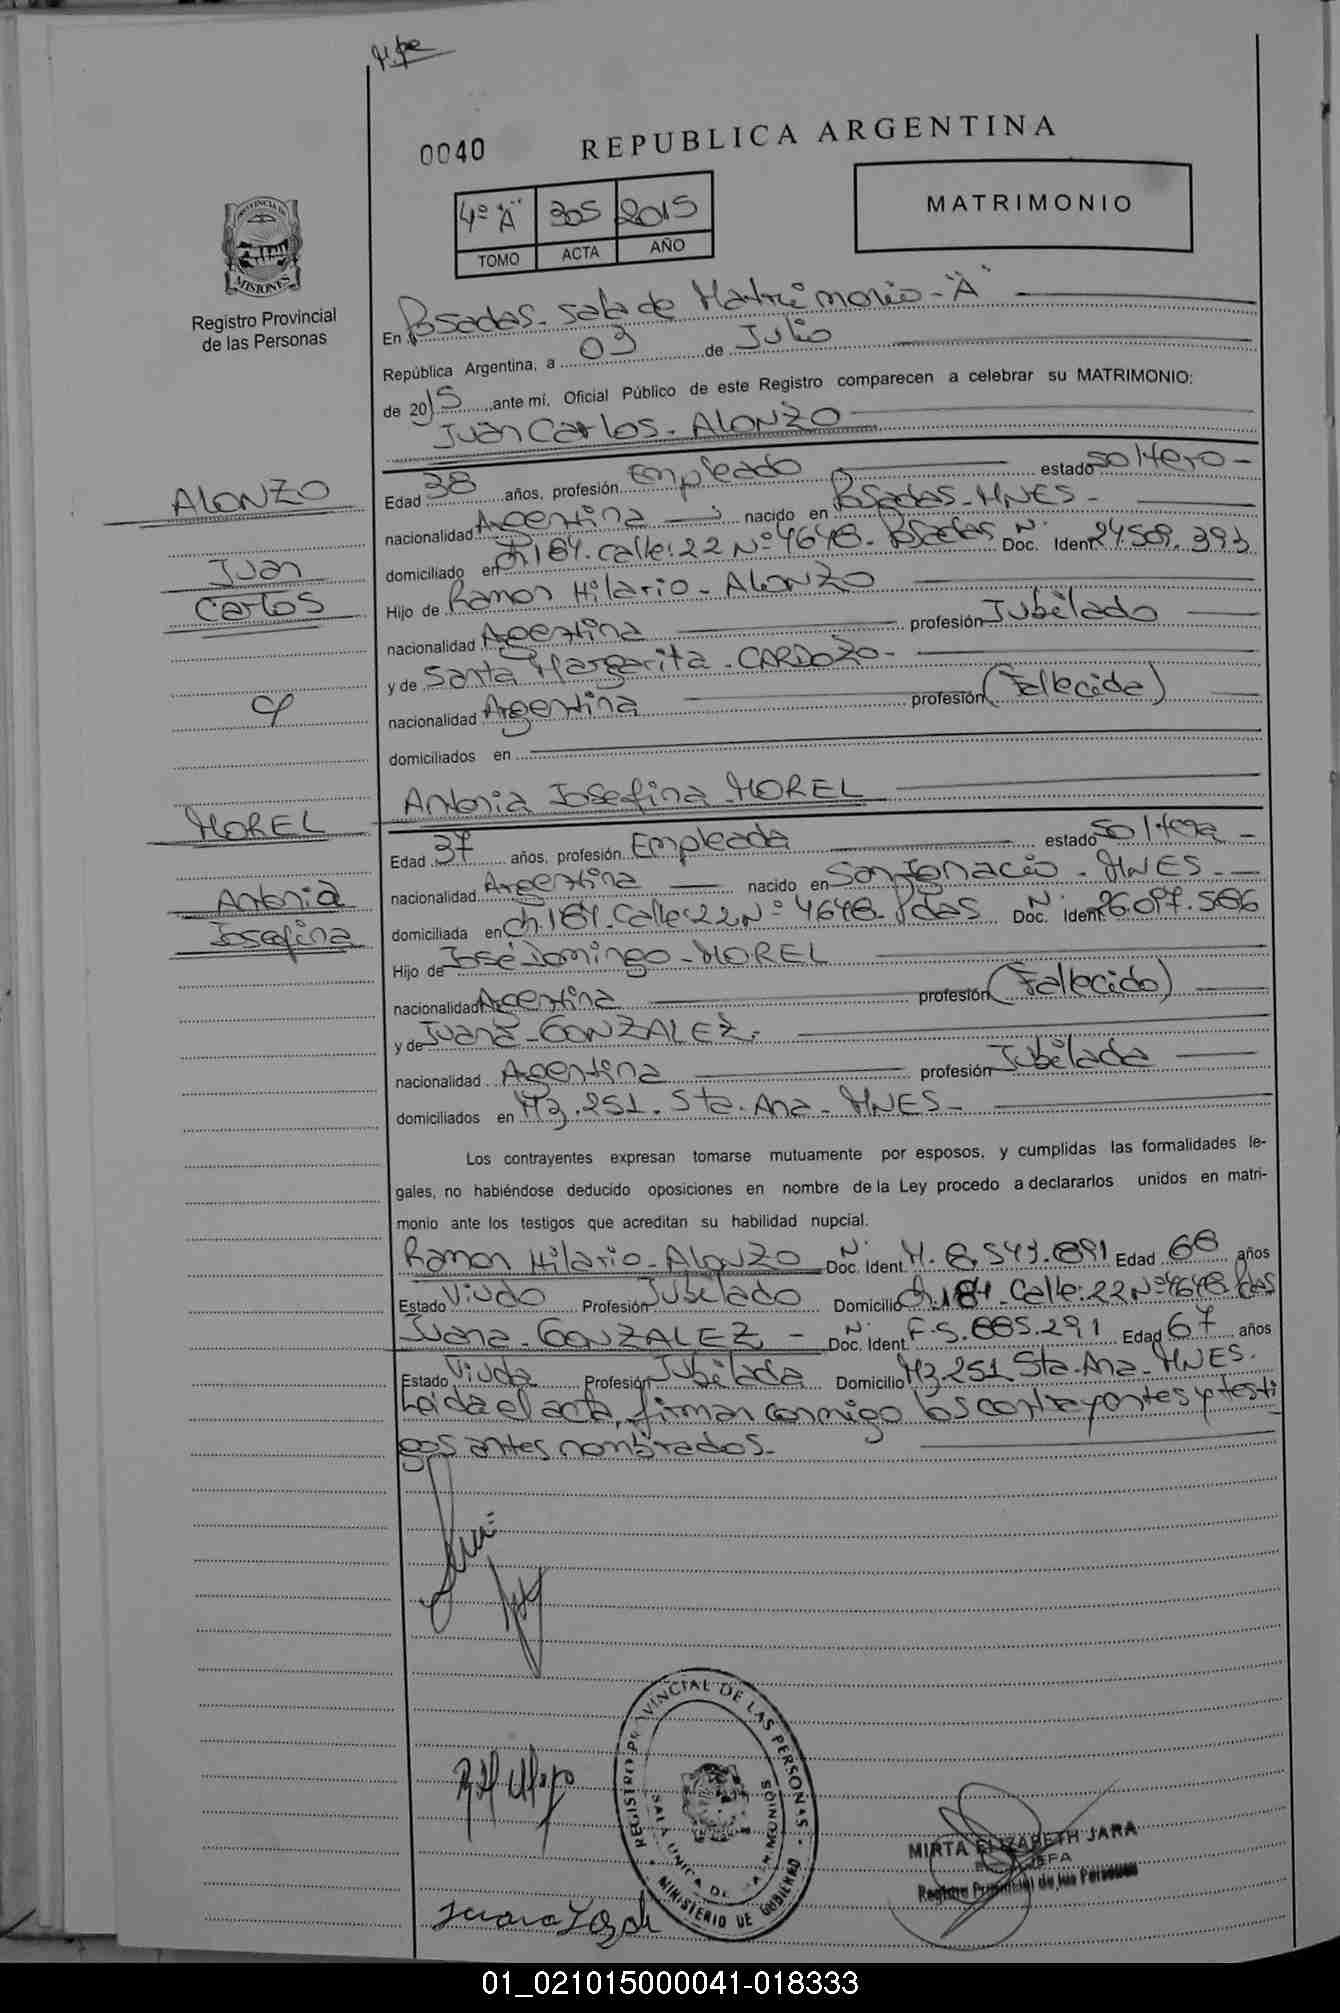 0040 REPUBLICA ARGENTINA
4º "A" 305 2015
TOMO ACTA AÑO
MATRIMONIO
PROVINCIA DE
MISIONES
Registro Provincial
de las Personas
En Posadas - Sala de Matrimonio - "A"
República Argentina, a 03 de Julio
de 2015 ante mi, Oficial Público de este Registro comparecen a celebrar su MATRIMONIO:
Juan Carlos - ALONZO
ALONZO
Juan
Carlos
Edad 38 años, profesión Empleado estado Soltero -
nacionalidad Argentina nacido en Posadas - MNES -
domiciliado en Ch. 184. Calle: 22 Nº 4648 - Posadas Doc. Ident. Nº 24.509.393
Hijo de Ramon Hilario - ALONZO
nacionalidad Argentina profesión Jubilado
y de Santa Margarita - CARDOZO -
nacionalidad Argentina profesión (Fallecida)
domiciliados en
Antonia Josefina MOREL
MOREL
Antonia
Josefina
Edad 37 años, profesión Empleada estado Soltera -
nacionalidad Argentina nacido en San Ignacio - MNES -
domiciliada en Ch. 184. Calle: 22 Nº 4648 - Pdas Doc. Ident. Nº 26.097.566
Hijo de José Domingo - MOREL
nacionalidad Argentina profesión (Fallecido)
y de Juana - GONZALEZ.
nacionalidad Argentina profesión Jubilada
domiciliados en Mz. 251. Sta. Ana - MNES -
Los contrayentes expresan tomarse mutuamente por esposos, y cumplidas las formalidades le-
gales, no habiéndose deducido oposiciones en nombre de la Ley procedo a declararlos unidos en matri-
monio ante los testigos que acreditan su habilidad nupcial.
Ramon Hilario - Alonzo Doc. Ident. Nº M. 8.549.891 Edad 66 años
Estado Viudo Profesión Jubilado Domicilio Ch. 184 - Calle: 22 Nº 4648 Pdas
Juana - GONZALEZ - Doc. Ident. Nº F. 5.665.291 Edad 67 años
Estado Viuda Profesión Jubilada Domicilio Mz 251 Sta. Ana - MNES.
Leida el acta, firman conmigo los contrayentes y testi
gos antes nombrados -
REGISTRO PROVINCIAL DE LAS PERSONAS
MINISTERIO DE GOBIERNO
SALA UNICA DE MATRIMONIOS
MIRTA ELIZABETH JARA
JEFA
Registro Provincial de las Personas
01_021015000041-018333